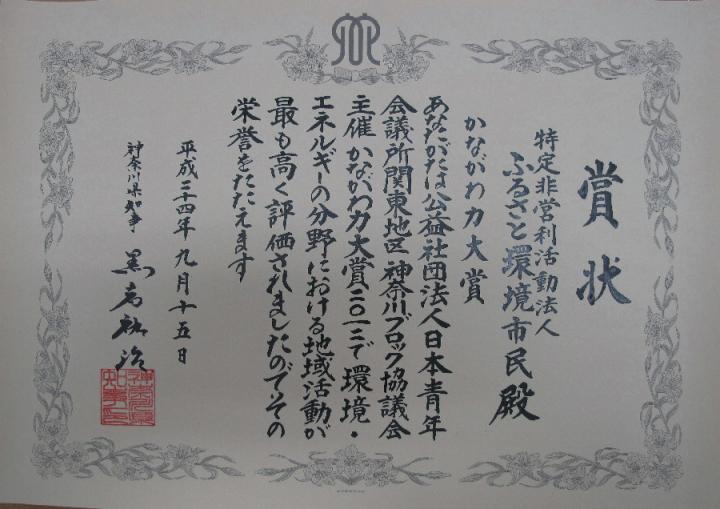 賞状
特定非営利活動法人
ふるさと環境市民殿
かながわ力大賞
あなたがたは公益社団法人日本青年
会議所関東地区神奈川ブロック協議会
主催かながわ力大賞二〇一二で環境・
エネルギーの分野における地域活動が
最も高く評価されましたのでその
栄誉をたたえます
平成二十四年九月十五日
神奈川県知事 黒岩祐治
神奈川県知事之印